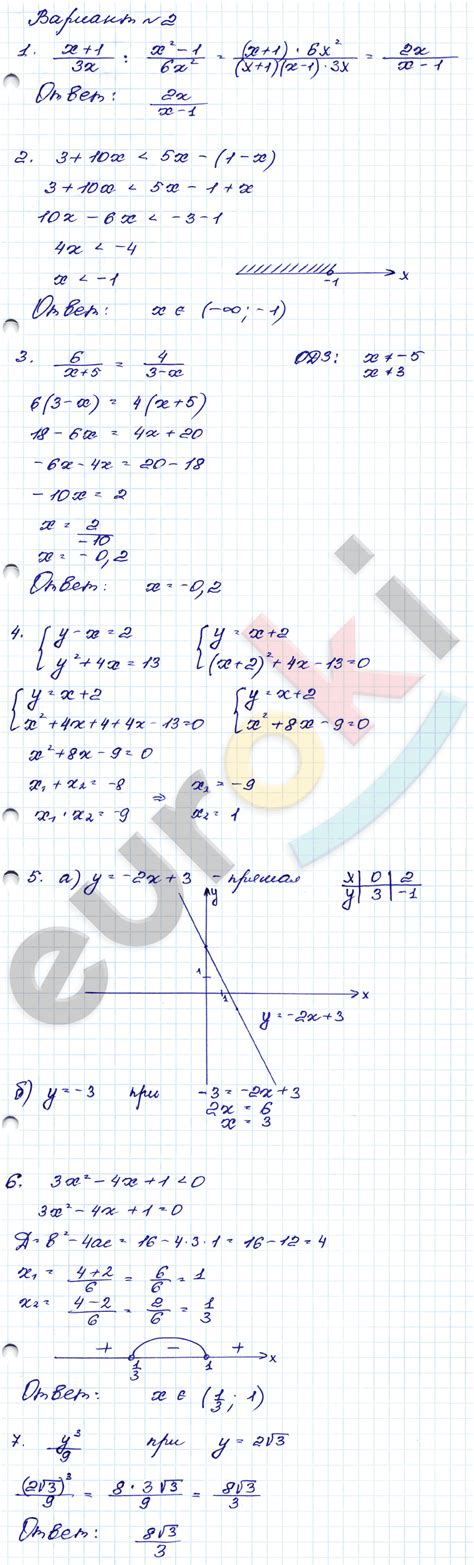 Вариант №2
1. (x+1)/(3x) : (x²-1)/(6x²) = ((x+1)·6x²)/((x+1)(x-1)·3x) = 2x/(x-1)
Ответ: 2x/(x-1)
2. 3+10x < 5x-(1-x)
3+10x < 5x-1+x
10x-6x < -3-1
4x < -4
x < -1
-1 x
Ответ: x ∈ (-∞; -1)
3. 6/(x+5) = 4/(3-x) ОДЗ: x≠-5
x≠3
6(3-x) = 4(x+5)
18-6x = 4x+20
-6x-4x = 20-18
-10x = 2
x = 2/(-10)
x = -0,2
Ответ: x=-0,2
4. { y-x=2 { y=x+2
y²+4x=13 (x+2)²+4x-13=0
{ y=x+2 { y=x+2
x²+4x+4+4x-13=0 x²+8x-9=0
x²+8x-9=0
x₁+x₂=-8 ⇒ x₂=-9
x₁·x₂=-9 x₂=1
5. а) y=-2x+3 - прямая x | 0 | 2
y | 3 | -1
y
1
1 x
y=-2x+3
б) y=-3 при -3=-2x+3
2x=6
x=3
6. 3x²-4x+1<0
3x²-4x+1=0
Д=b²-4ac=16-4·3·1=16-12=4
x₁ = (4+2)/6 = 6/6 = 1
x₂ = (4-2)/6 = 2/6 = 1/3
+ - +
1/3 1 x
Ответ: x ∈ (1/3; 1)
7. y³/9 при y=2√3
(2√3)³/9 = (8·3√3)/9 = 8√3/3
Ответ: 8√3/3
euroki